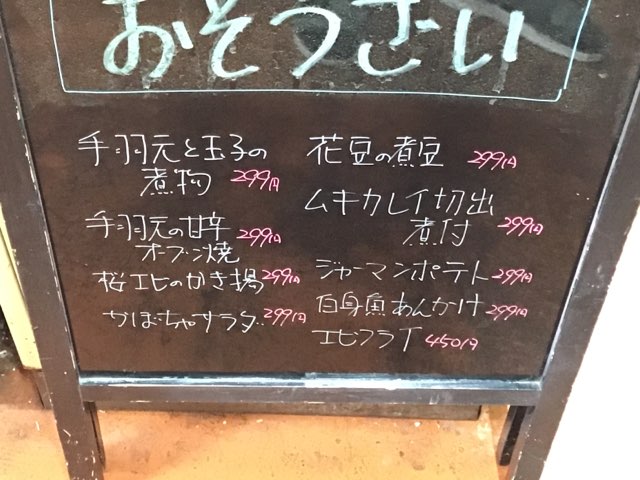 おそうざい
手羽元と玉子の
煮物 299円
手羽元の甘辛
オーブン焼 299円
桜エビのかき揚 299円
かぼちゃサラダ 299円
花豆の煮豆 299円
ムキカレイ切出
煮付 299円
ジャーマンポテト 299円
白身魚あんかけ 299円
エビフライ 450円